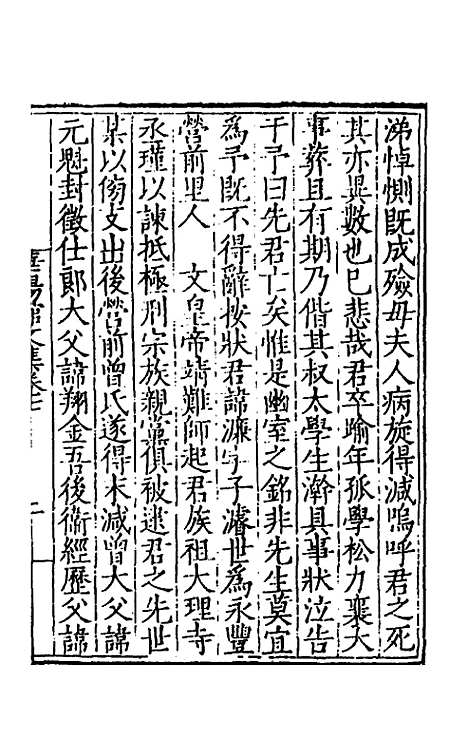 涕悼惻既成殮毋夫人病旋得減嗚呼君之死
其亦異數也已悲哉君卒踰年孤學松力襄大
事葬且有期乃偕其叔太學生澣具事狀泣告
于予曰先君亡矣惟是幽室之銘非先生莫宜
為予既不得辭按狀君諱濂字子濬世為永豐
營前里人 文皇帝靖難師起君族祖大理寺
丞瑾以諫抵極刑宗族親黨俱被逮君之先世
某以傍支出後營前曾氏遂得末減曾大父諱
元魁封徵仕郎大父諱翔金吾後衛經歷父諱